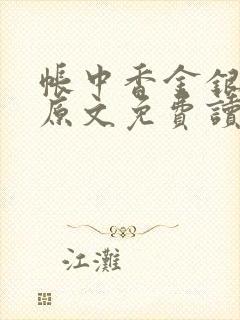 帳中香金銀
原文免費讀
江灘